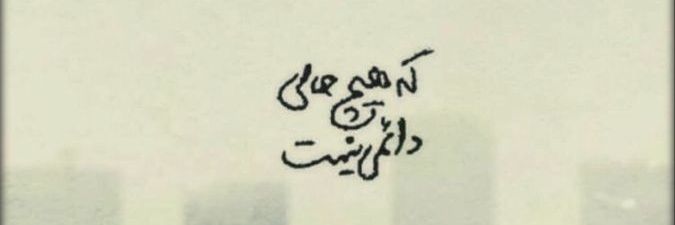 که هیچ حالی
دائمی نیست